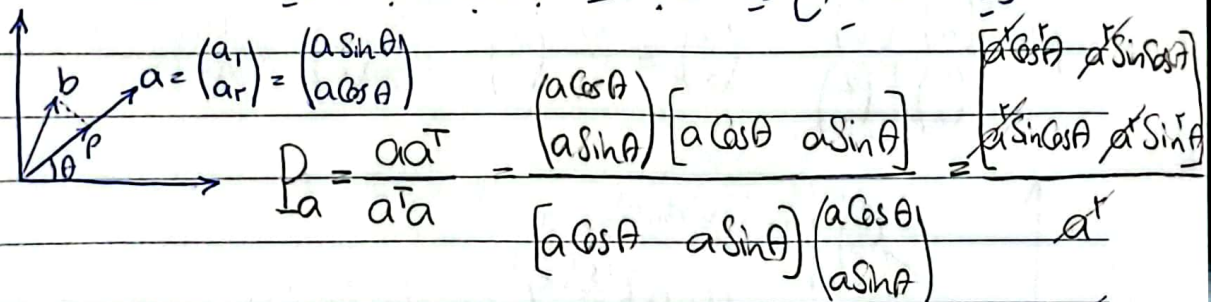 b
a = (a₁ a₂) = (a Sinθ a Cosθ)
p
θ
Pₐ = aaᵀ / aᵀa = (a Cosθ a Sinθ) [a Cosθ a Sinθ] / [a Cosθ a Sinθ] (a Cosθ a Sinθ) = [a² Cos²θ a² Sin Cosθ a² Sin Cosθ a² Sin²θ] / a²